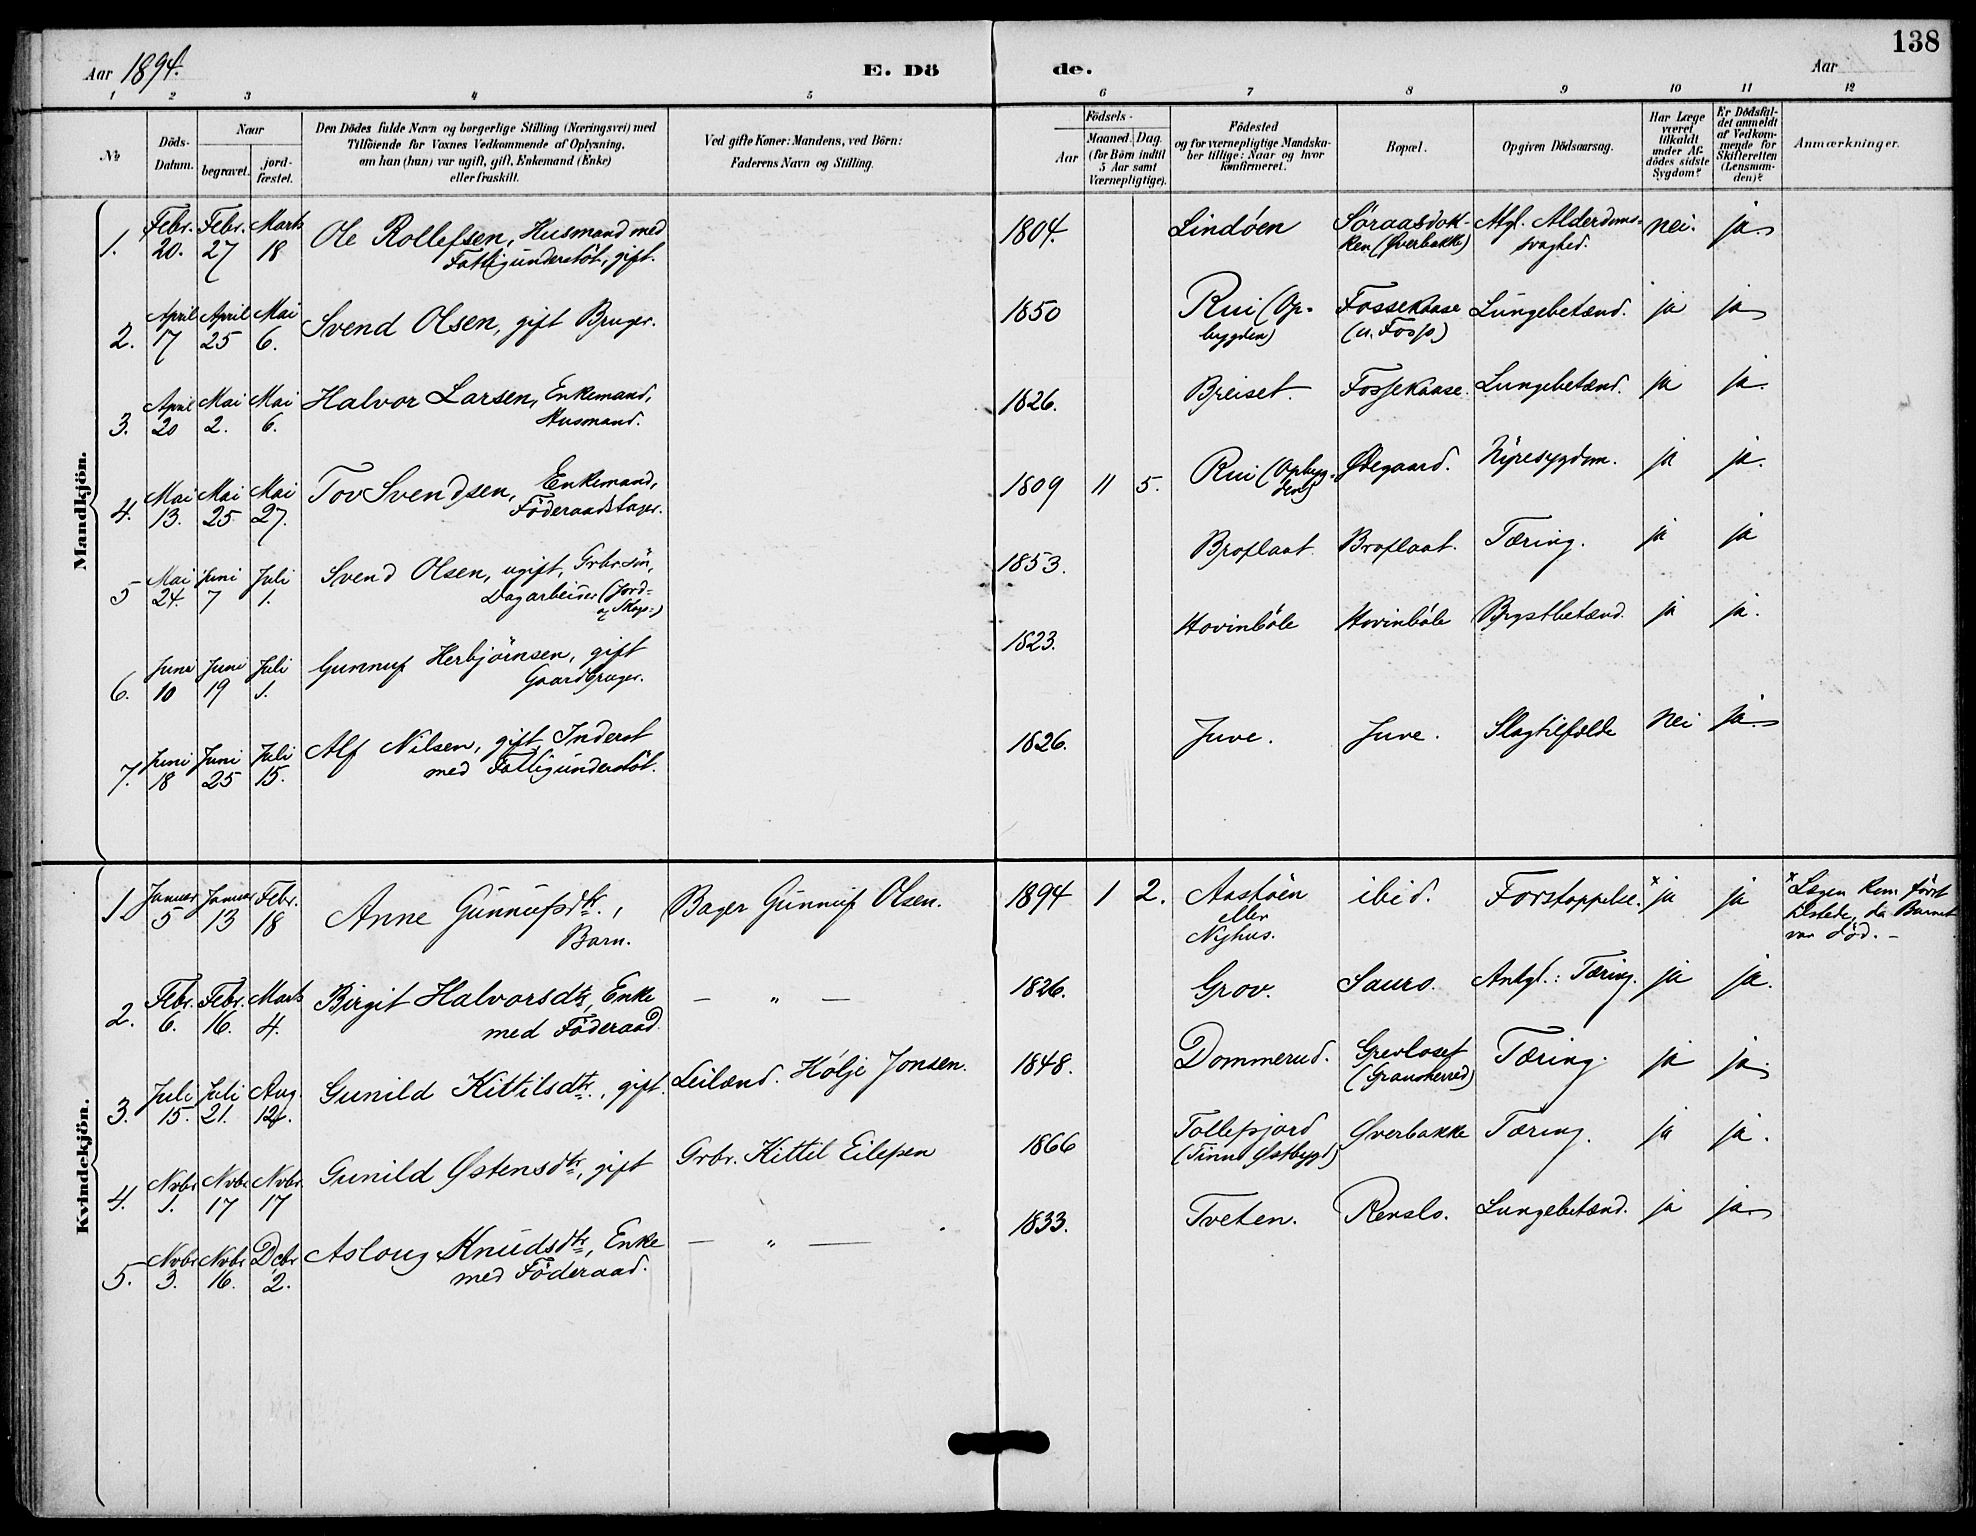 138
Aar 1894.
E. Dö de.
Aar
1 2 3 4 5 6 7 8 9 10 11 12
No
Döds-Datum.
Naar
begravet.
jord-fæstet.
Den Dödes fulde Navn og borgerlige Stilling (Næringsvei) med
Tilföiende for Voxnes Vedkommende af Oplysning,
om han (hun) var ugift, gift, Enkemand (Enke)
eller fraskilt.
Ved gifte Koner: Mandens, ved Börn:
Faderens Navn og Stilling.
Födsels-
Aar
Maaned. Dag.
(for Börn indtil
5 Aar samt
Værnepligtige).
Födested
og for værnepligtige Mandska-
ber tillige: Naar og hvor
konfirmeret.
Bopæl.
Opgiven Dödsaarsag.
Har Læge
været
tilkaldt
under Af-
dödes sidste
Sygdom?
Er Dödsfal-
det anmeldt
af Vedkom-
mende for
Skifteretten
(Lensman-
den)?
Anmærkninger.
Mandkjön.
1. Febr. 20. Febr. 27 Marts 18 Ole Rollefsen, Husmand med
Fattigunderstöt, gift. 1804. Lindöen Söraasdok-
ken (Øverbakke) Mgl. Alderdoms-
svaghed. nei. ja.
2. April 17 April 25 Mai 6. Svend Olsen, gift Bruger. 1850 Rui (Op-
bygden) Fossekaase
(u. Foss) Lungebetænd. ja ja
3. April 20 Mai 2. Mai 6. Halvor Larsen, Enkemand,
Husmand. 1826. Breiset. Fossekaase. Lungebetænd. ja ja.
4. Mai 13. Mai 25 Mai 27. Tov Svendsen, Enkemand,
Föderaadstager. 1809 11 5. Rui (Opbyg-
den) Ødegaard. Nyresygdom. ja ja.
5 Mai 24. Juni 7 Juli 1. Svend Olsen, ugift, Grbr.sön,
Dagarbeider (Jord-
og Skogs-) 1853. Broflaat. Broflaat. Tæring. ja ja
6. Juni 10 Juni 19 Juli 1. Gunnuf Herbjörnsen, gift
Gaardbruger. 1823. Hovinböle Hovinböle Brystbetænd. ja ja.
7. Juni 18 Juni 25 Juli 15. Alf Nilsen, gift, Inderst
med Fattigunderstöt. 1826. Juve. Juve. Slagtilfælde nei ja.
Kvindekjön.
1. Januar 5 Januar 13 Febr. 18 Anne Gunnufsdtr.,
Barn. Bager Gunnuf Olsen. 1894 1 2. Aastöen
eller
Nyhus. ibid. Forstoppelse. × ja ja × Lægen kom först
tilstede, da Barnet
var död. -
2. Febr. 6. Febr. 16. Marts 4. Birgit Halvorsdtr, Enke
med Föderaad. — „ — 1826. Grov. Sauro. Antgl.: Tæring. ja ja.
3. Juli 15. Juli 21. Aug. 12. Gunild Kittilsdtr., gift. Leilænd. Hölje Jonsen. 1848. Dommerud. Grevloset
(Gransherred) Tæring. ja ja.
4. Novbr 1. Novbr 17 Novbr 17 Gunild Østensdtr, gift Grbr. Kittil Eilefsen 1866 Tollefsjord
(Tinns Østbygd) Øverbakke Tæring. ja ja.
5. Novbr 3. Novbr 16. Dcbr 2. Aslaug Knudsdtr, Enke
med Föderaad. — „ — 1833. Tveten. Renslo. Lungebetænd. ja ja